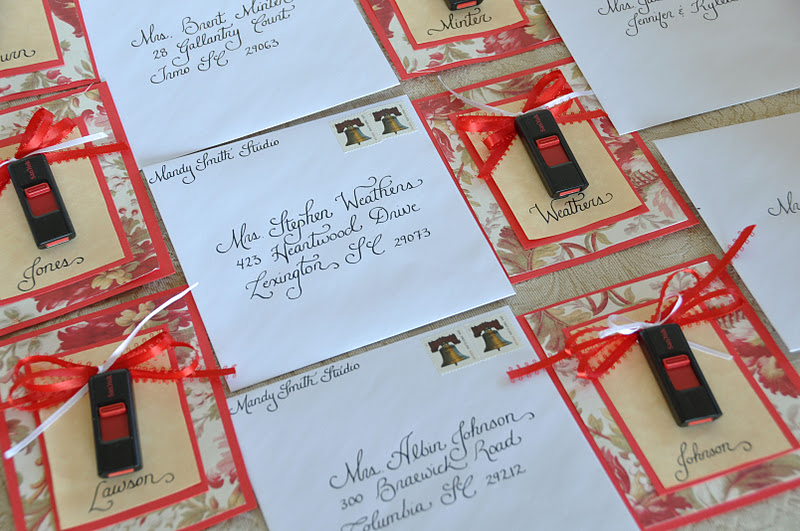 Mrs. Brent Minter
28 Gallantry Court
Irmo SC 29063
Minter
Jennifer & Kyle
Mandy Smith Studio
Mrs. Stephen Weathers
423 Heartwood Drive
Lexington SC 29073
SanDisk
Weathers
SanDisk
Jones
Mandy Smith Studio
Mrs. Albin Johnson
300 Braewick Road
Columbia SC 29212
SanDisk
Johnson
SanDisk
Lawson